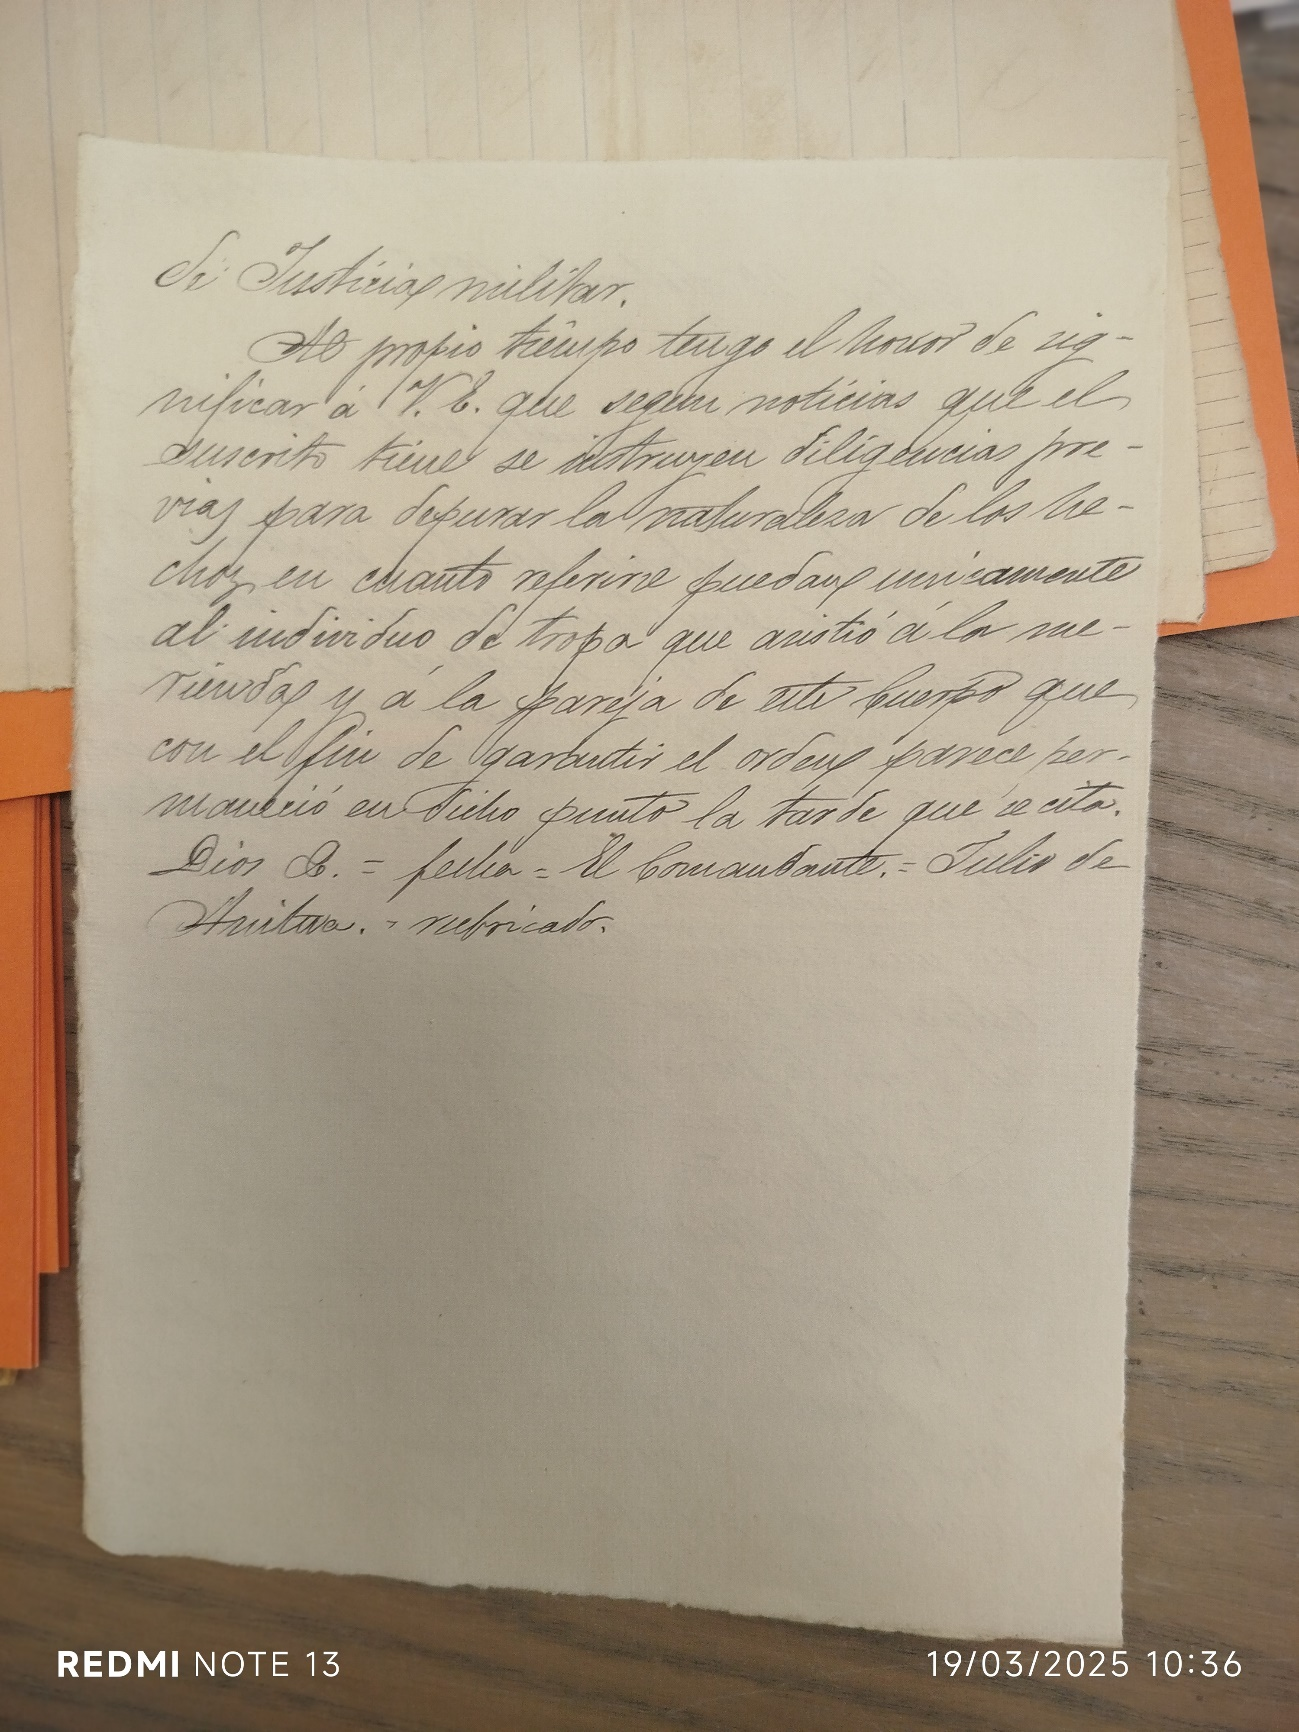 de Justicia militar.
Al propio tiempo tengo el honor de sig-
nificar á V. E. que segun noticias que el
suscrito tiene se instruyen diligencias pre-
vias para depurar la naturaleza de los he-
chos en cuanto referirse puedan unicamente
al individuo de tropa que asistió á la me-
rienda y á la pareja de este Cuerpo que
con el fin de garantir el orden parece per-
maneció en dicho punto la tarde que se cita.
Dios &. = fecha = El Comandante. = Julio de
. = rubricado.
REDMI NOTE 13
19/03/2025 10:36